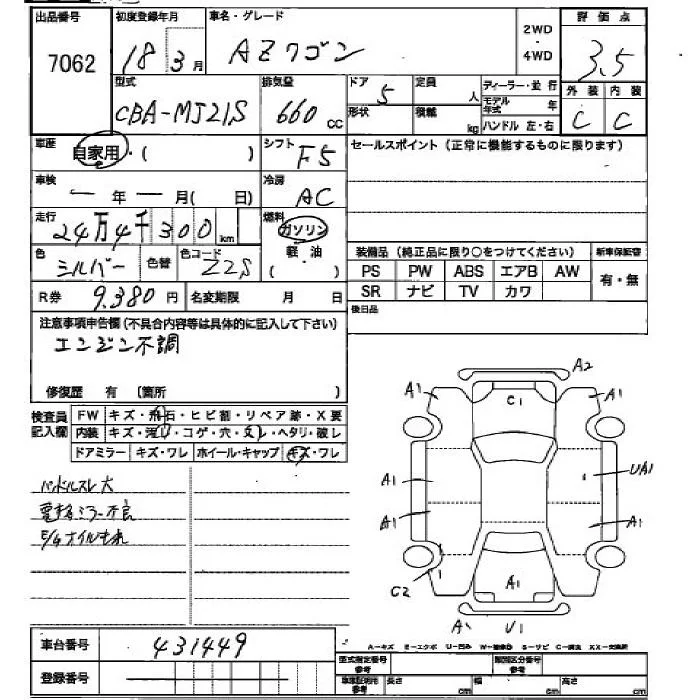 出品番号 7062
初度登録年月 18 3月
車名・グレード AZワゴン
2WD・4WD
評価点 3.5
型式 CBA-MJ21S
排気量 660 cc
ドア 5
形状
定員 人
積載 kg
ディーラー・並行
モデル年式 年
ハンドル 左・右
外装 C
内装 C
車歴 自家用・( )
シフト F5
セールスポイント(正常に機能するものに限ります)
車検 ー年ー月( 日)
冷房 AC
走行 24万4千300km
燃料 ガソリン
軽・油
( )
色 シルバー 色替
色コード Z2S
装備品(純正品に限り○をつけてください)
新車保証書
PS PW ABS エアB AW
有・無
SR ナビ TV カワ
R券 9.380円
名変期限 月 日
後日品
注意事項申告欄(不具合内容等は具体的に記入して下さい)
エンジン不調
修復歴 有 〔箇所 〕
検査員記入欄
FW キズ・飛石・ヒビ割・リペア跡・X要
内装 キズ・汚レ・コゲ・穴・スレ・ヘタリ・破レ
ドアミラー キズ・ワレ ホイール・キャップ キズ・ワレ
ハンドルスレ大
電格ミラー不良
E/Gオイルもれ
A2
A1 C1 A1
A1 UA1
A1 A1
C2 A1
A1 U1
車台番号 431449
登録番号
A-キズ E-エクボ U-凹み W-補修跡 S-サビ C-腐食 XX-交換済
型式指定番号 参考
類別区分番号 参考
車庫証明用 参考 長さ cm 幅 cm 高さ cm